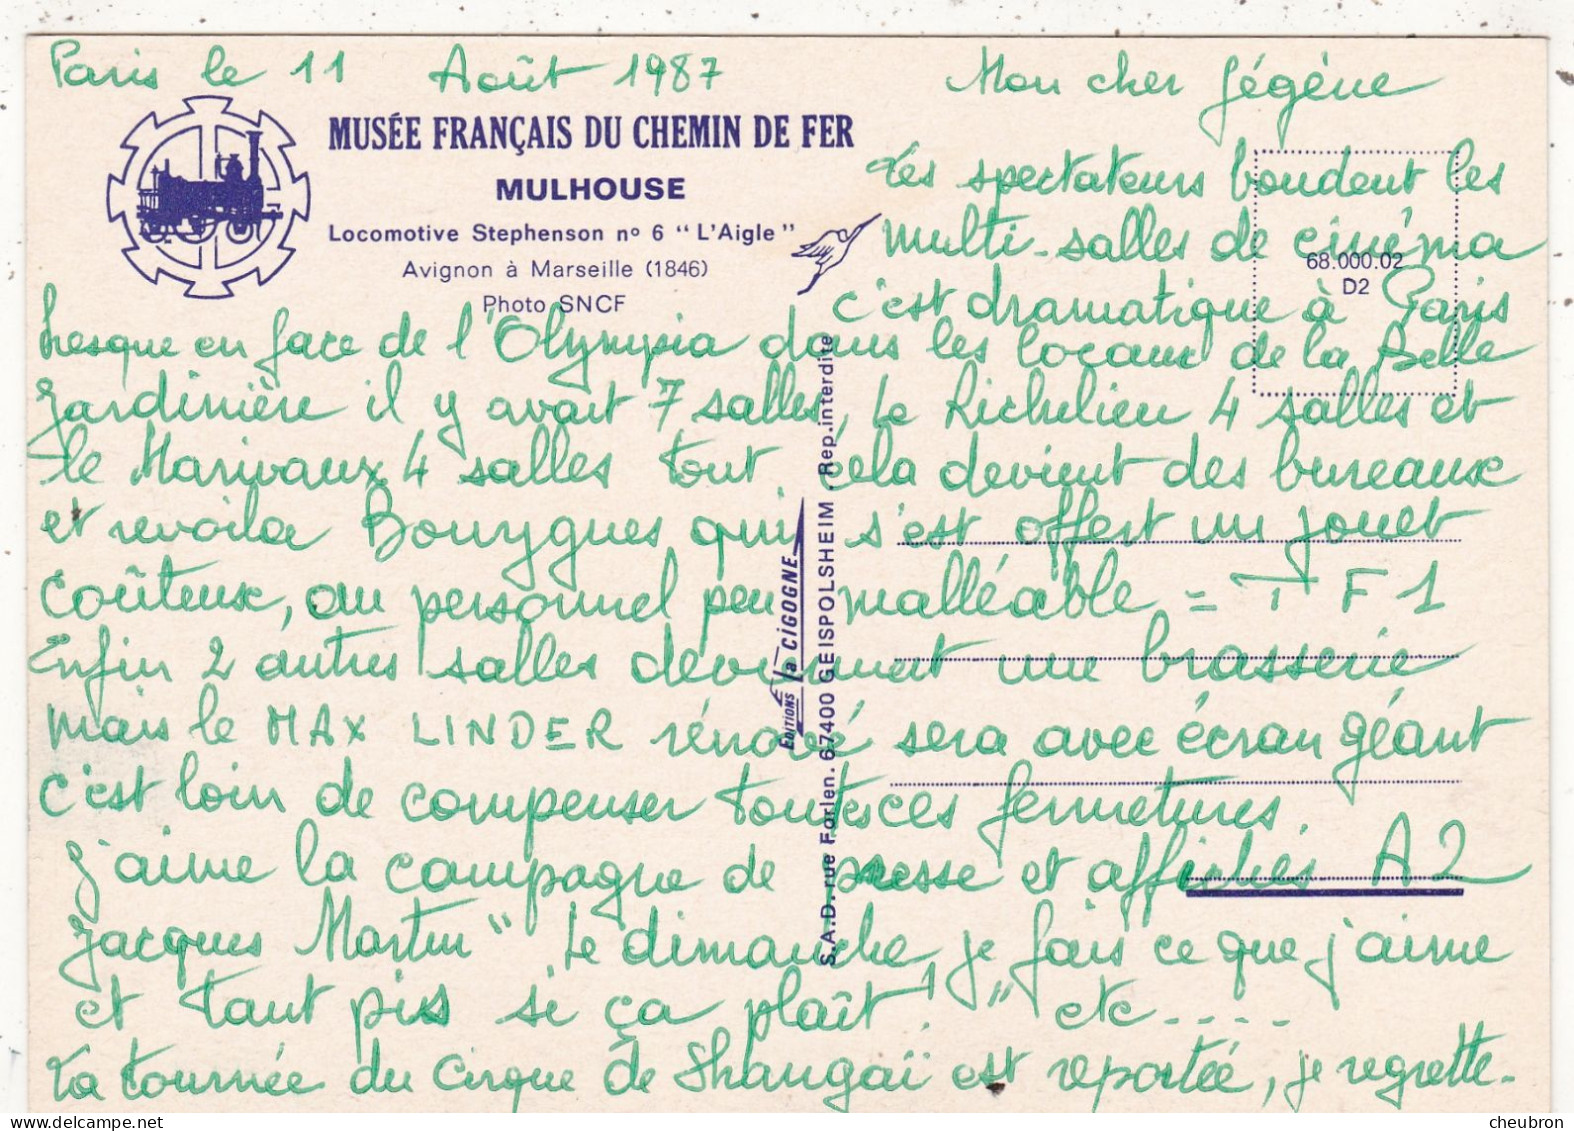 Paris le 11 Août 1987 Mon cher Gégène
MUSÉE FRANÇAIS DU CHEMIN DE FER
MULHOUSE
Locomotive Stephenson nº 6 "L'Aigle"
Avignon à Marseille (1846)
Photo SNCF
68.000.02
D2
Les spectateurs boudent les
multi-salles de cinéma
c'est dramatique à Paris
presque en face de l'Olympia dans les locaux de la Belle
Jardinière il y avait 7 salles, le Richelieu 4 salles et
le Marivaux 4 salles tout cela devient des bureaux
et revoila Bouygues qui s'est offert un jouet
coûteux, au personnel peu malléable = TF1
Enfin 2 autres salles deviennent une brasserie
mais le MAX LINDER rénové sera avec écran géant
c'est loin de compenser toutes ces fermetures.
J'aime la campagne de presse et affichés A2
Jacques Martin " Le dimanche, je fais ce que j'aime
et tant pis si ça plaît ! " etc.....
La tournée du Cirque de Shangaï est reportée, je regrette.
EDITIONS la CIGOGNE
S.A.D. rue Forlen. 67400 GEISPOLSHEIM . Rep. interdite
cheubron